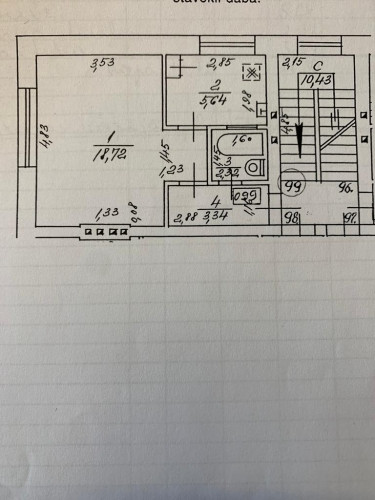 stāvokli daba.
3,53
2,85
2,15
C
10,43
2
5,64
1,98
4,83
1
18,72
4,85
1,60
1,45
1,45
3
2,32
1,23
99
96.
4
3,34
2,88
1,33
0,08
98.
97.